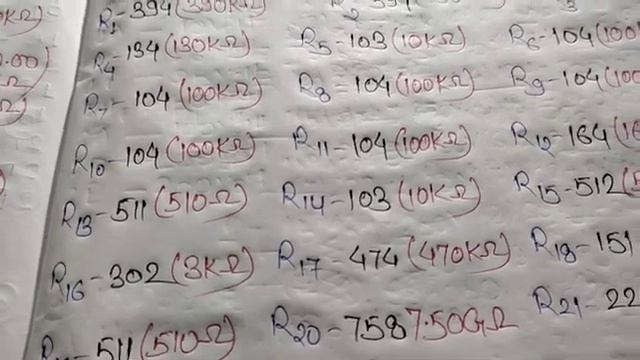 R4-134(130KΩ) R5-103(10KΩ) R6-104(100
R7-104(100KΩ) R8-104(100KΩ) R9-104(100
R10-104(100KΩ) R11-104(100KΩ) R12-164(16
R13-511(510Ω) R14-103(10KΩ) R15-512(5
R16-302(3KΩ) R17-474(470KΩ) R18-151
511(510Ω) R20-758 7.50GΩ R21-22